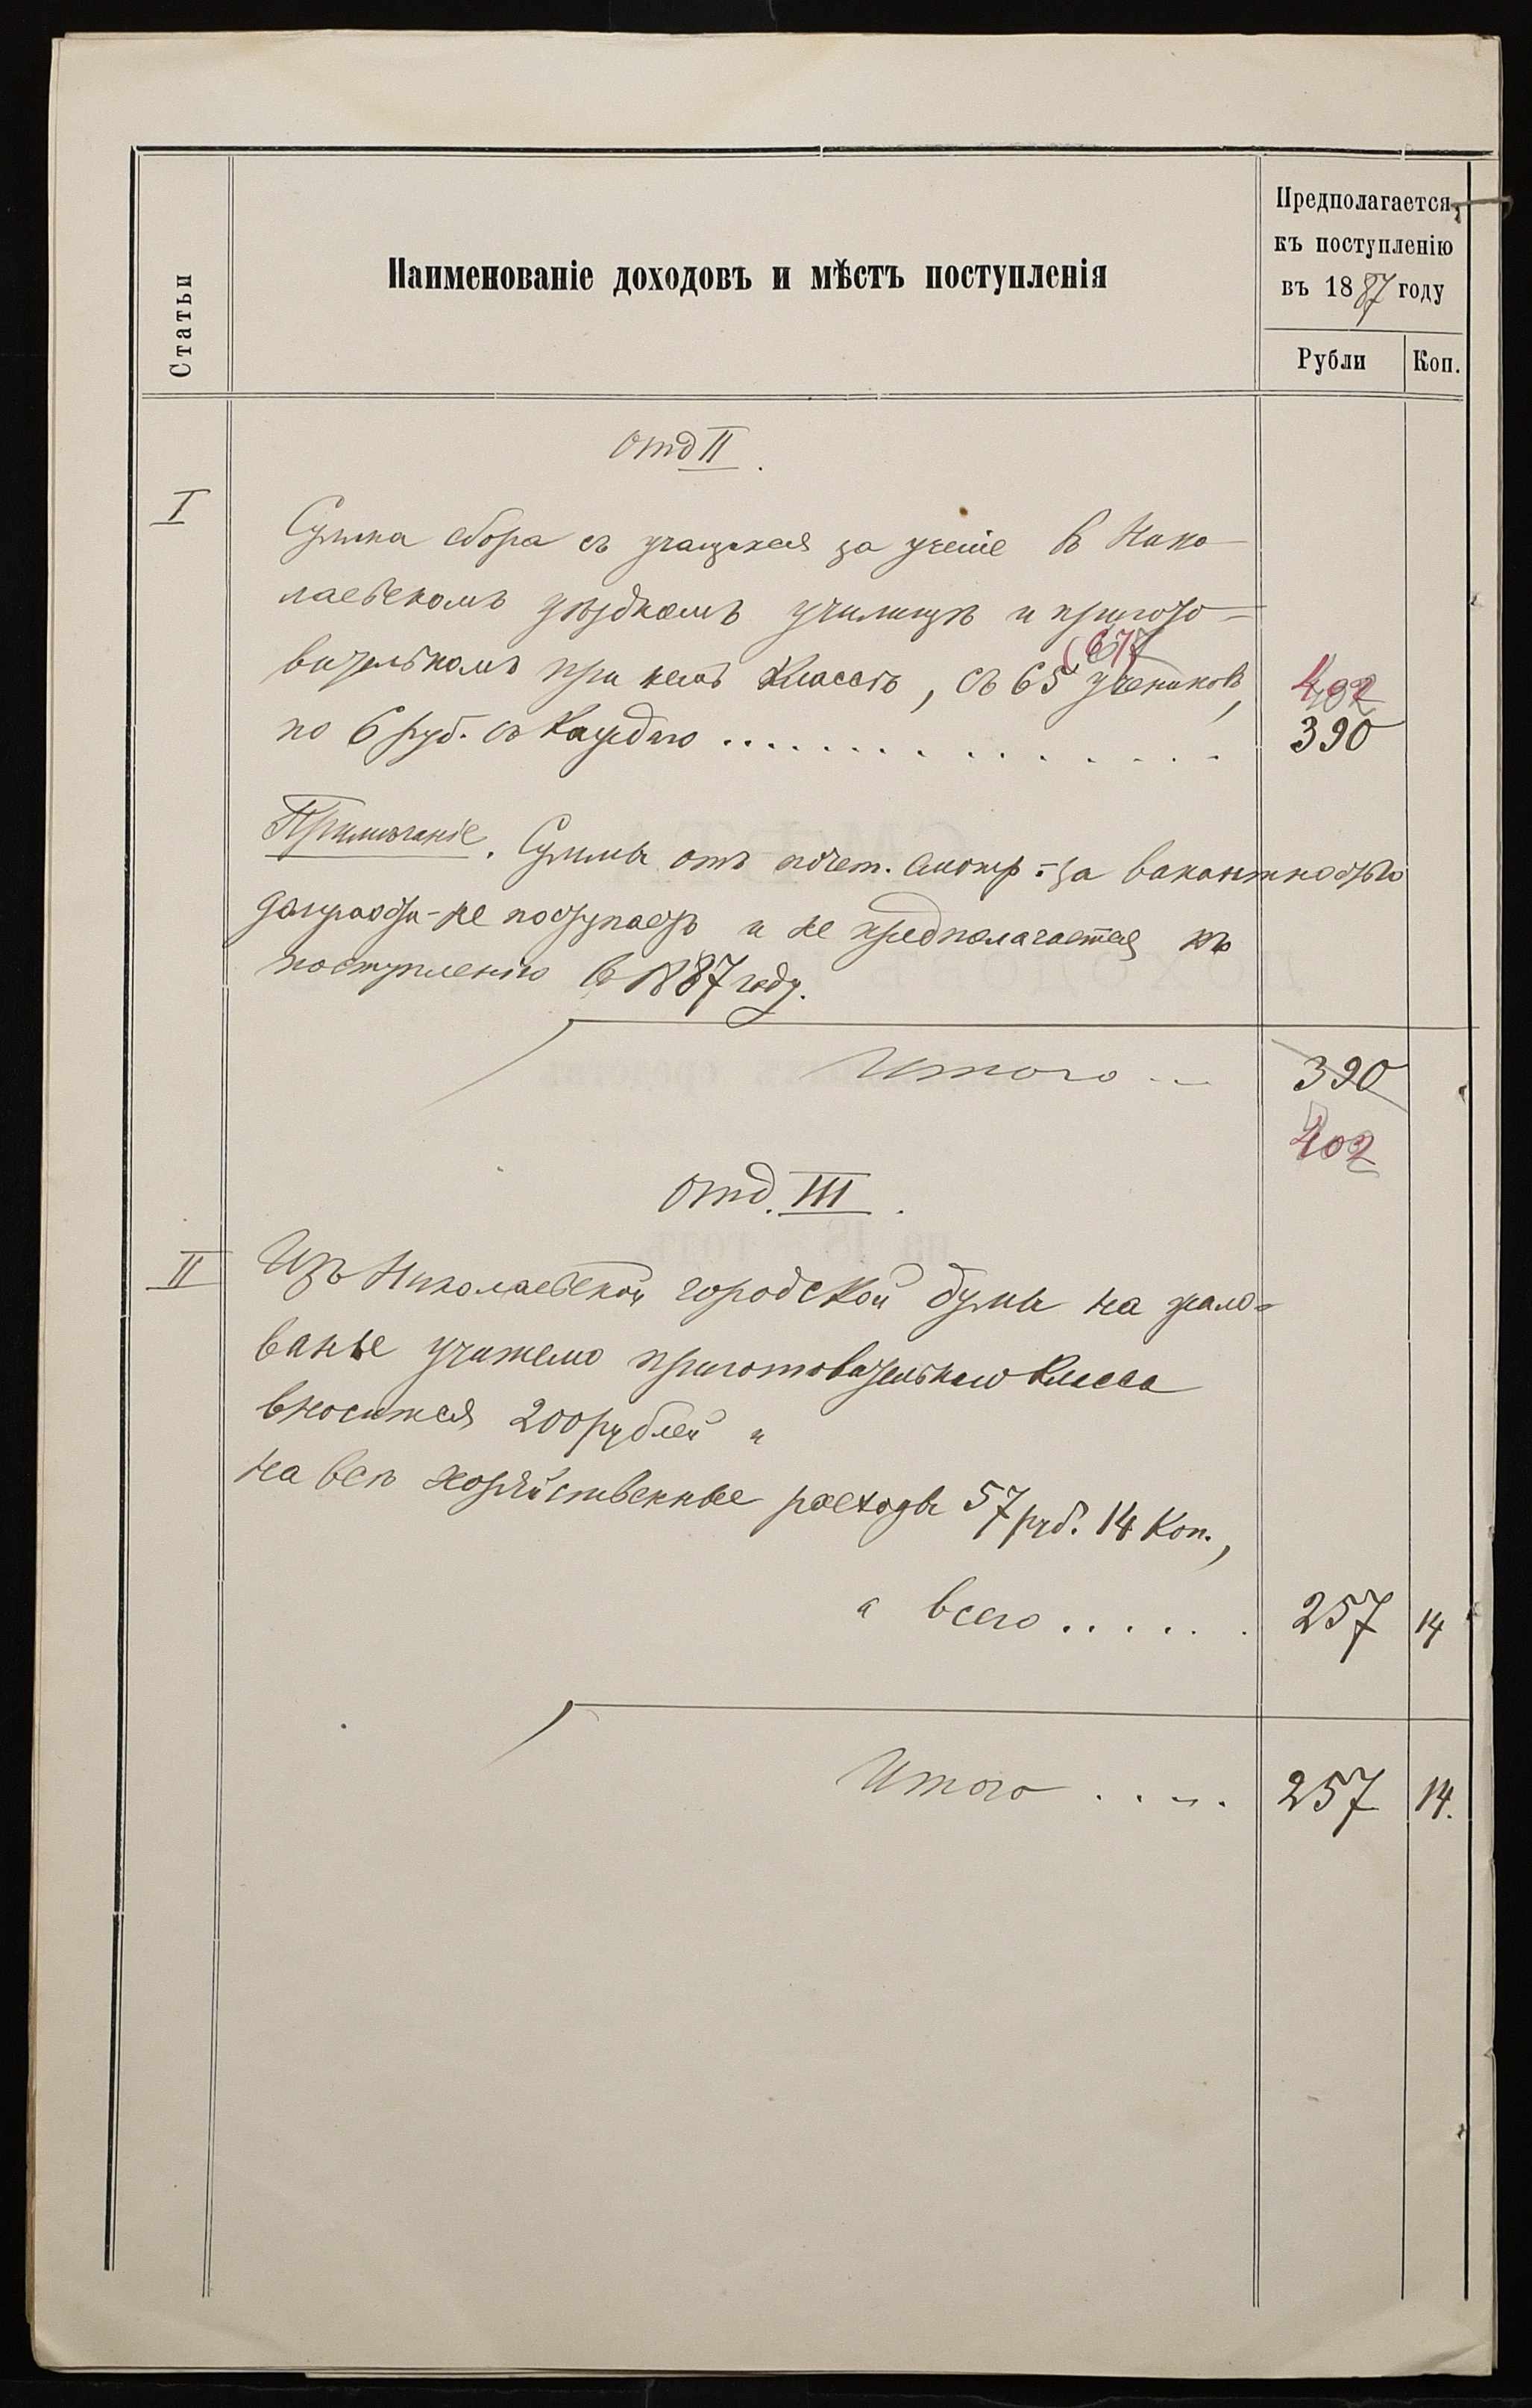 Статьи
Наименованіе доходовъ и мѣстъ поступленія
Предполагается
къ поступленію
въ 1887 году
Рубли
Коп.
Отд II.
I
Сумма сбора съ учащихся за ученіе в Нико-
лаевскомъ уѣздномъ училищѣ и пригото-
(67)
вительномъ при немъ Классѣ, съ 65 учениковъ,
402
по 6 руб. съ каждаго . . . . . . . . . . . . . .
390
Примѣчаніе. Суммы отъ почет. смотр. - за вакантностью
должности - не поступаетъ и не предполагается къ
поступленію въ 1887 году.
Итого
390
402
Отд. III.
II
Изъ Николаевской городской думы на жало-
ванье учителю приготовительнаго Класса
вносится 200 рублей и
на всѣ хозяйственные расходы 57 руб. 14 Коп.,
а всего . . . . . .
257 14
Итого . . . .
257 14.